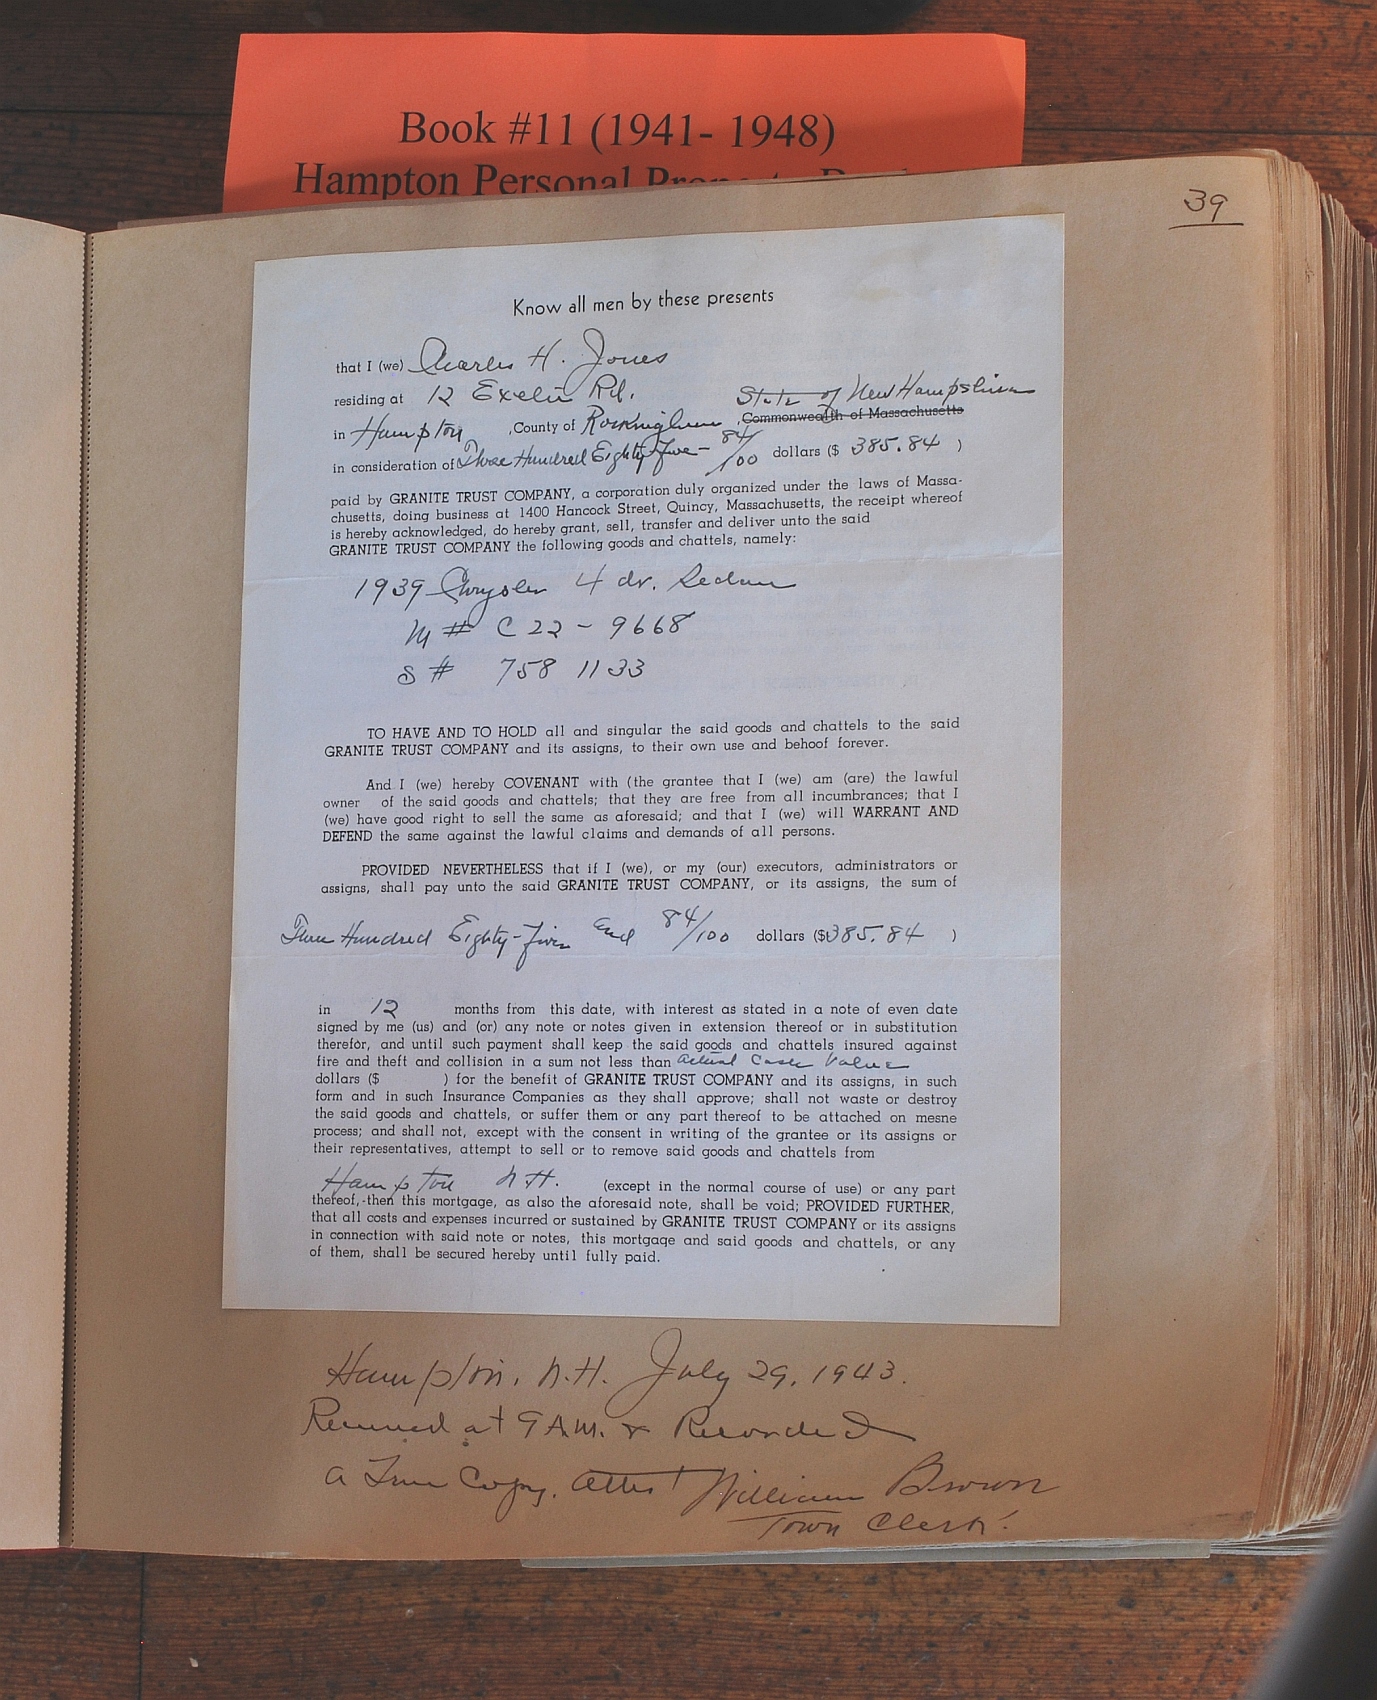 Book #11 (1941- 1948)
Hampton Personal
39
Know all men by these presents
that I (we) Charles H. Jones
residing at 12 Exeter Rd. State of New Hampshire
in Hampton , County of Rockingham , Commonwealth of Massachusetts
in consideration of Three Hundred Eighty-Five- 84/100 dollars ($ 385.84 )
paid by GRANITE TRUST COMPANY, a corporation duly organized under the laws of Massa-
chusetts, doing business at 1400 Hancock Street, Quincy, Massachusetts, the receipt whereof
is hereby acknowledged, do hereby grant, sell, transfer and deliver unto the said
GRANITE TRUST COMPANY the following goods and chattels, namely:
1939 Chrysler 4 dr. Sedan
M # C 22 - 9668
S # 758 1133
TO HAVE AND TO HOLD all and singular the said goods and chattels to the said
GRANITE TRUST COMPANY and its assigns, to their own use and behoof forever.
And I (we) hereby COVENANT with (the grantee that I (we) am (are) the lawful
owner of the said goods and chattels; that they are free from all incumbrances; that I
(we) have good right to sell the same as aforesaid; and that I (we) will WARRANT AND
DEFEND the same against the lawful claims and demands of all persons.
PROVIDED NEVERTHELESS that if I (we), or my (our) executors, administrators or
assigns, shall pay unto the said GRANITE TRUST COMPANY, or its assigns, the sum of
Three Hundred Eighty-Five and 84/100 dollars ($385.84 )
in 12 months from this date, with interest as stated in a note of even date
signed by me (us) and (or) any note or notes given in extension thereof or in substitution
therefor, and until such payment shall keep the said goods and chattels insured against
fire and theft and collision in a sum not less than actual cash value
dollars ($ ) for the benefit of GRANITE TRUST COMPANY and its assigns, in such
form and in such Insurance Companies as they shall approve; shall not waste or destroy
the said goods and chattels, or suffer them or any part thereof to be attached on mesne
process; and shall not, except with the consent in writing of the grantee or its assigns or
their representatives, attempt to sell or to remove said goods and chattels from
Hampton N.H. (except in the normal course of use) or any part
thereof, then this mortgage, as also the aforesaid note, shall be void; PROVIDED FURTHER,
that all costs and expenses incurred or sustained by GRANITE TRUST COMPANY or its assigns
in connection with said note or notes, this mortgage and said goods and chattels, or any
of them, shall be secured hereby until fully paid.
Hampton, N.H. July 29, 1943.
Received at 9 A.M. & Recorded
A True Copy, Attest William Brown
Town Clerk.